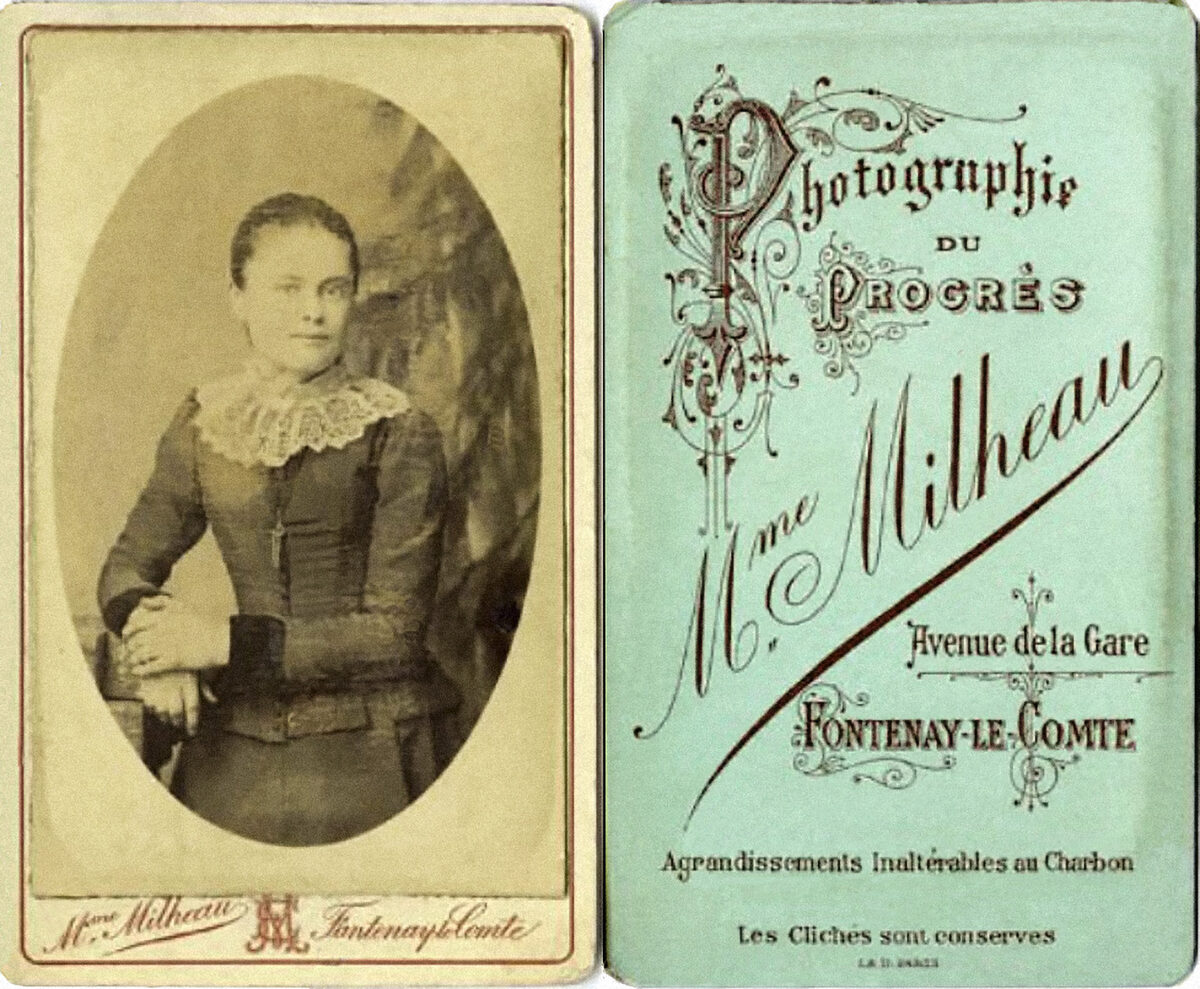 Mme. Milheau M Fontenay le Comte
Photographie
DU
PROGRÈS
Mme. Milheau
Avenue de la Gare
FONTENAY-LE-COMTE
Agrandissements Inaltérables au Charbon
Les Clichés sont conserves
PARIS